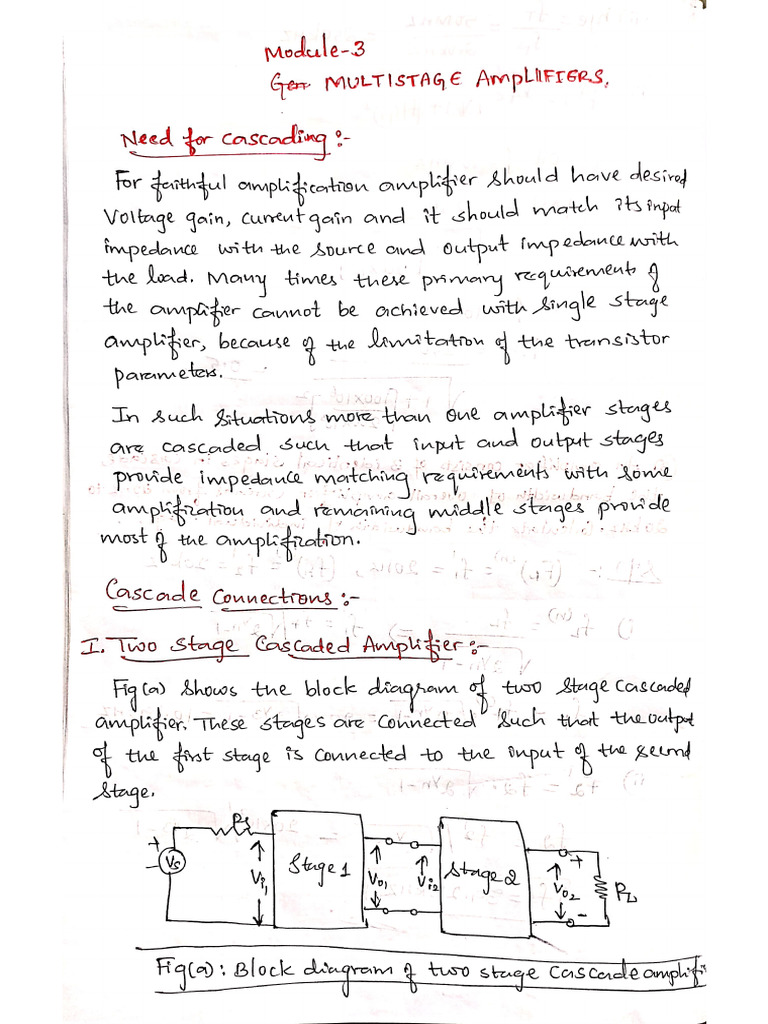 Module-3
Gen MULTISTAGE AmplIFIERS.
Need for cascading :-
For faithful amplification amplifier should have desired
voltage gain, current gain and it should match its input
impedance with the source and output impedance with
the load. Many times these primary requirement of
the amplifier cannot be achieved with single stage
amplifier, because of the limitation of the transistor
parameters.
In such situations more than one amplifier stages
are cascaded such that input and output stages
provide impedance matching requirements with some
amplifiation and remaining middle stages provide
most of the amplifiation.
Cascade Connections :-
I. Two Stage Cascaded Amplifier :-
Fig(a) shows the block diagram of two stage cascaded
amplifier. These stages are connected such that the output
of the first stage is connected to the input of the second
stage.
Rs
+
-
Vs
Vi1
Stage 1
Vo1
Vi2
Stage 2
+
Vo2
-
RL
Fig(a): Block diagram of two stage cascade amplifi